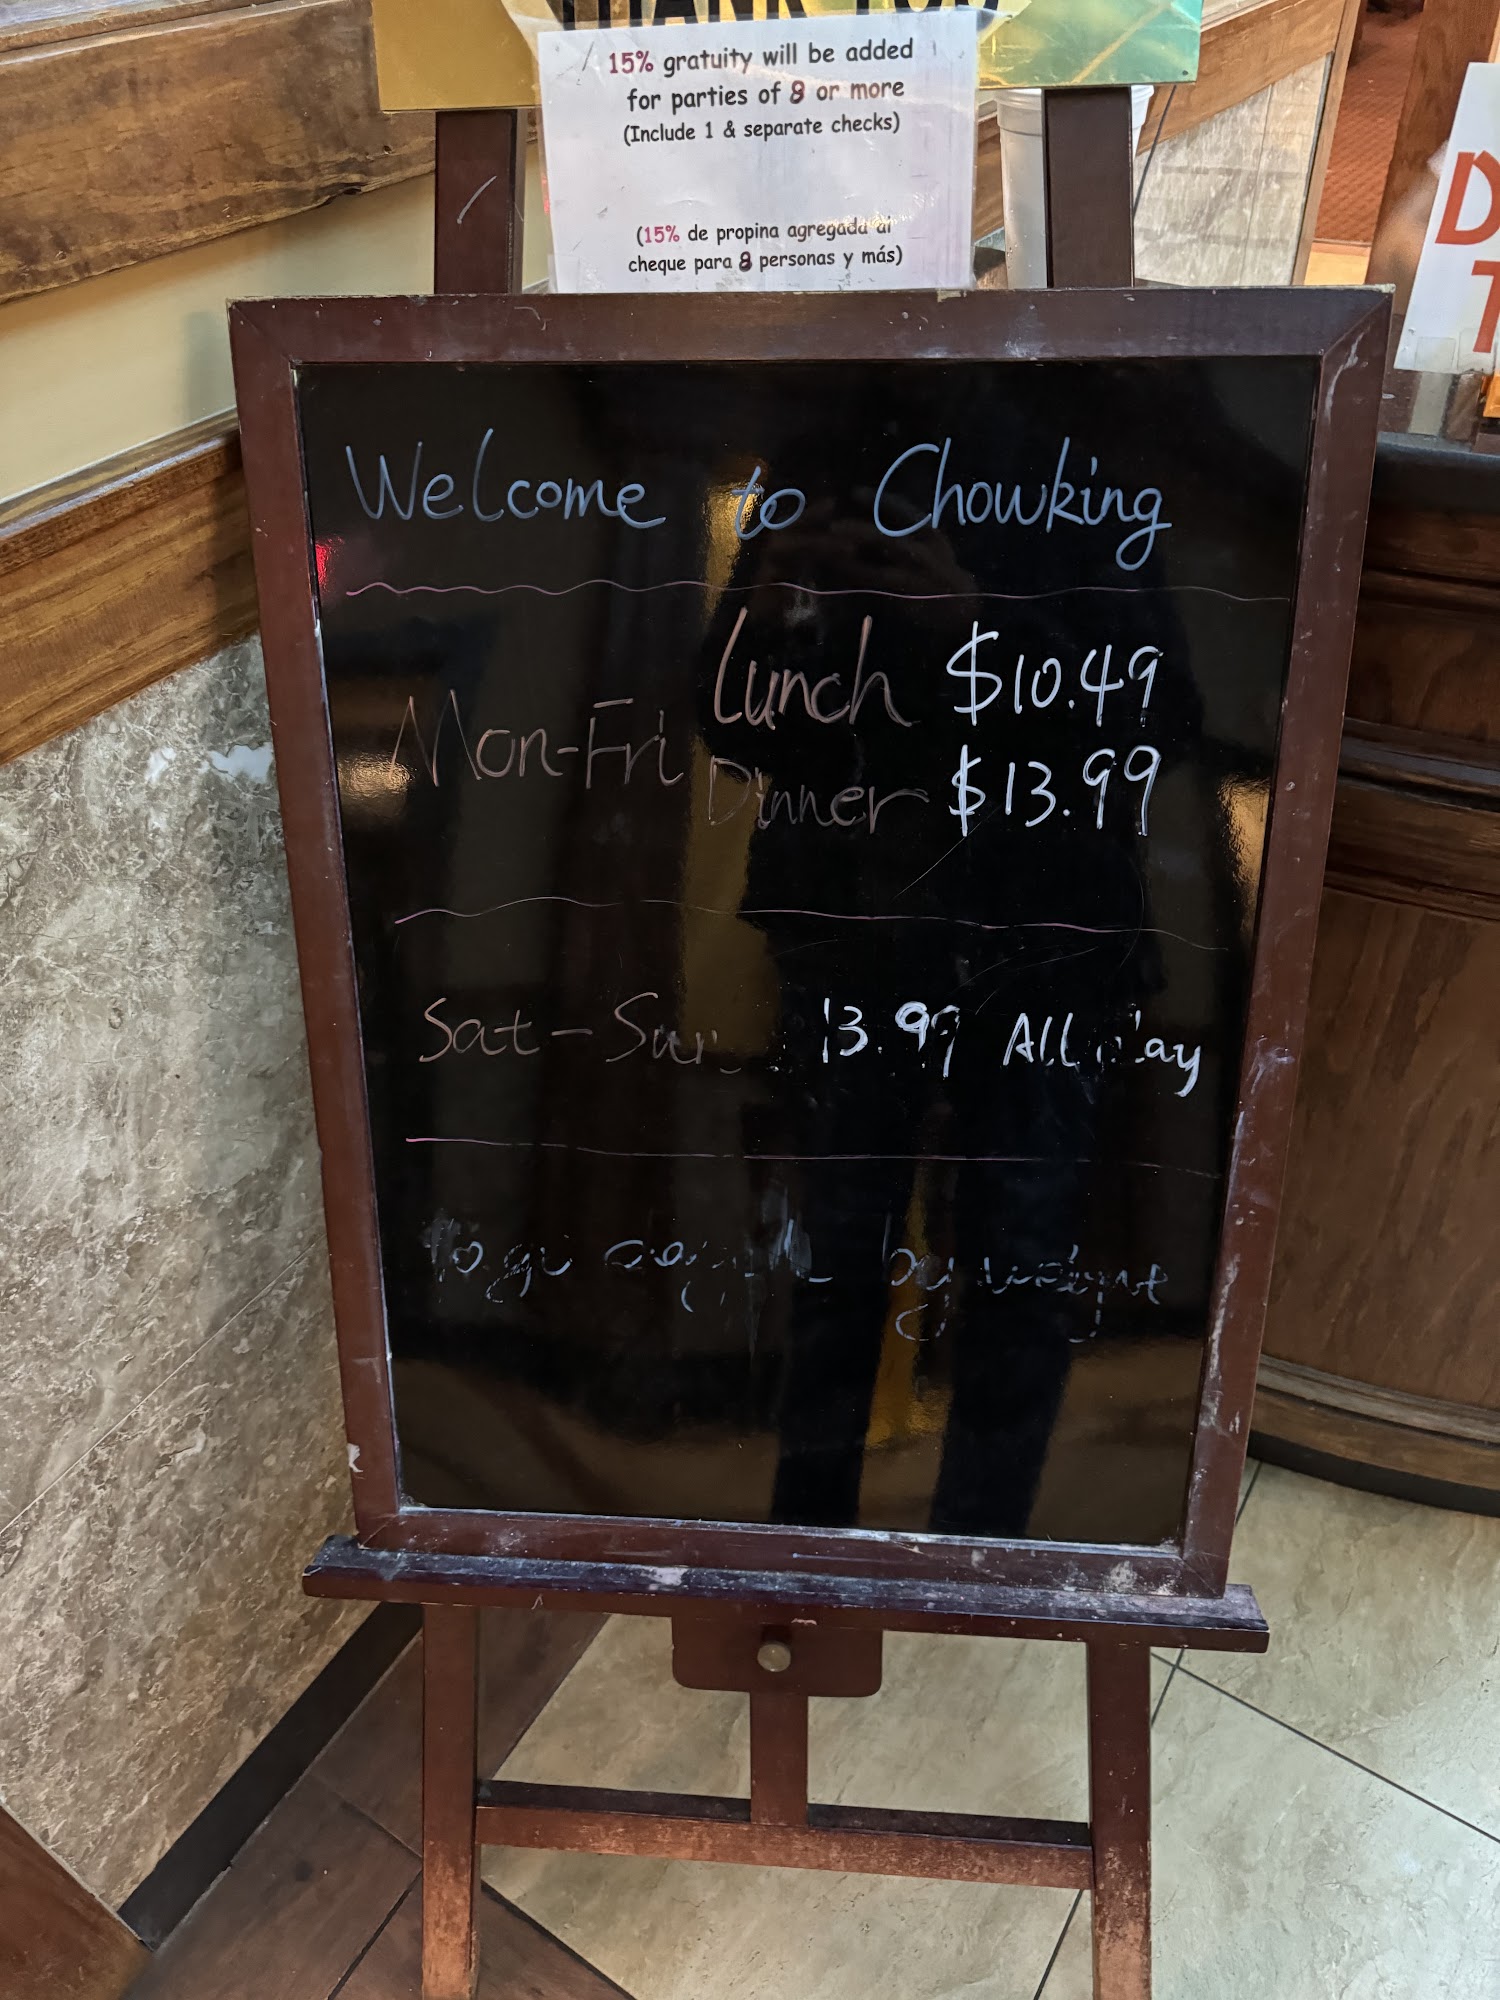 THANK YOU
15% gratuity will be added
for parties of 8 or more
(Include 1 & separate checks)
(15% de propina agregada al
cheque para 8 personas y más)
D
T
Welcome to Chowking
Lunch $10.49
Mon-Fri
Dinner $13.99
Sat-Sun 13.99 All day
by weight